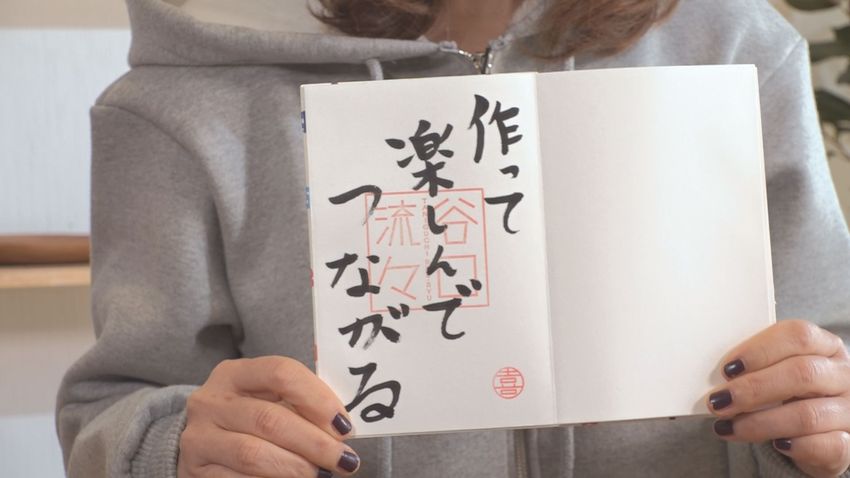 作って
楽しんで
つながる
谷口
流々
TANIGUCHI RYU-RYU
喜